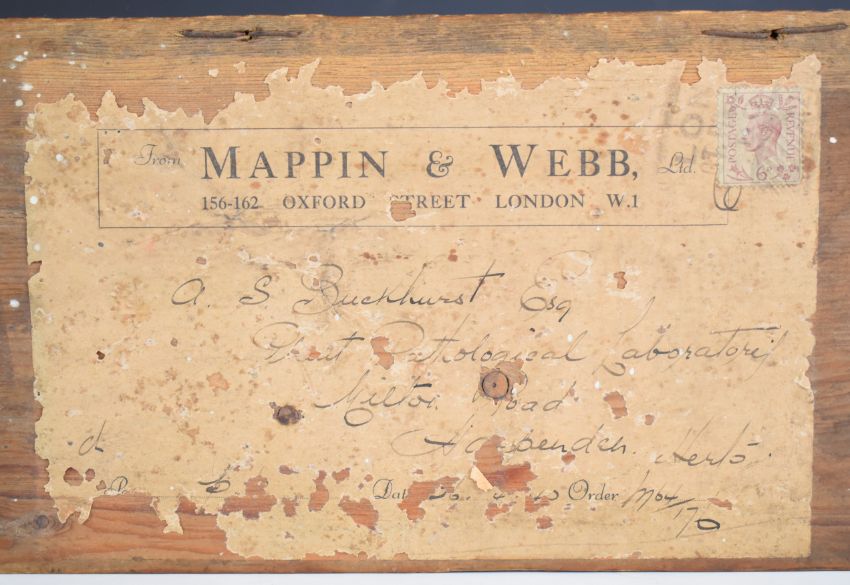 From MAPPIN & WEBB, Ltd.
156-162 OXFORD STREET LONDON W.1
POSTAGE REVENUE
6D
6
A. S Buckhurst Esq
Plant Pathological Laboratory
Milton Road
Harpenden. Herts.
Order